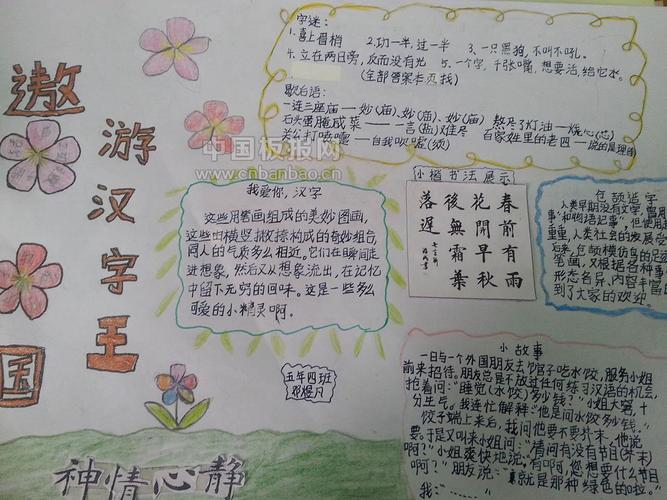 遨游汉字王国
字迷:
1.喜上眉梢 2.功一半,过一半 3.一只黑狗,不叫不吼。
4.立在两日旁,反而没有光 5.一个字,千张嘴,想要活,给它水。
(全部答案本页找)
歇后语:
一连三座庙——妙(庙)、妙(庙)、妙(庙) 熬尽了灯油——烧心(芯)
石头蛋腌咸菜——一言(盐)难尽 百家姓里的老四——说的是理
关公打喷嚏——自我吹嘘(须)
中国板报网
www.cnbanbao.cn
小楷书法展示
春前有雨
花開早秋
後無霜葉
落遲
我爱你,汉字
这些用笔画组成的美妙图画,
这些由横竖撇捺构成的奇妙组合,
同人的气质多么相近。它们在瞬间走
进想象,然后又从想象流出,在记忆
中留下无穷的回味。这是一些多么
可爱的小精灵啊。
仓颉造字
人类早期没有文字,曾用
事"和物语记事",但使用
重重,人类社会的发展
后来,仓颉模仿鸟的足迹
笔画,又根据各种事
形态名异、内容丰富
到了大家的欢迎
五年四班
小故事
一日与一个外国朋友去饺子馆吃水饺,服务小姐
前来招待。朋友总是不放过任何练习汉语的机会,
抢着问:"睡觉(水饺)多少钱?"小姐大窘,十
分生气。我连忙解释"他是问水饺多少钱。"
饺子端上来后,我问他要不要芥末,他说
要。于是又叫来小姐问:"请问有没有节目(芥末)
啊?"小姐爽快地说:"有啊,您想要什么节目
啊?"朋友说:"就是那种绿色的啦。"
我:……
神情心静